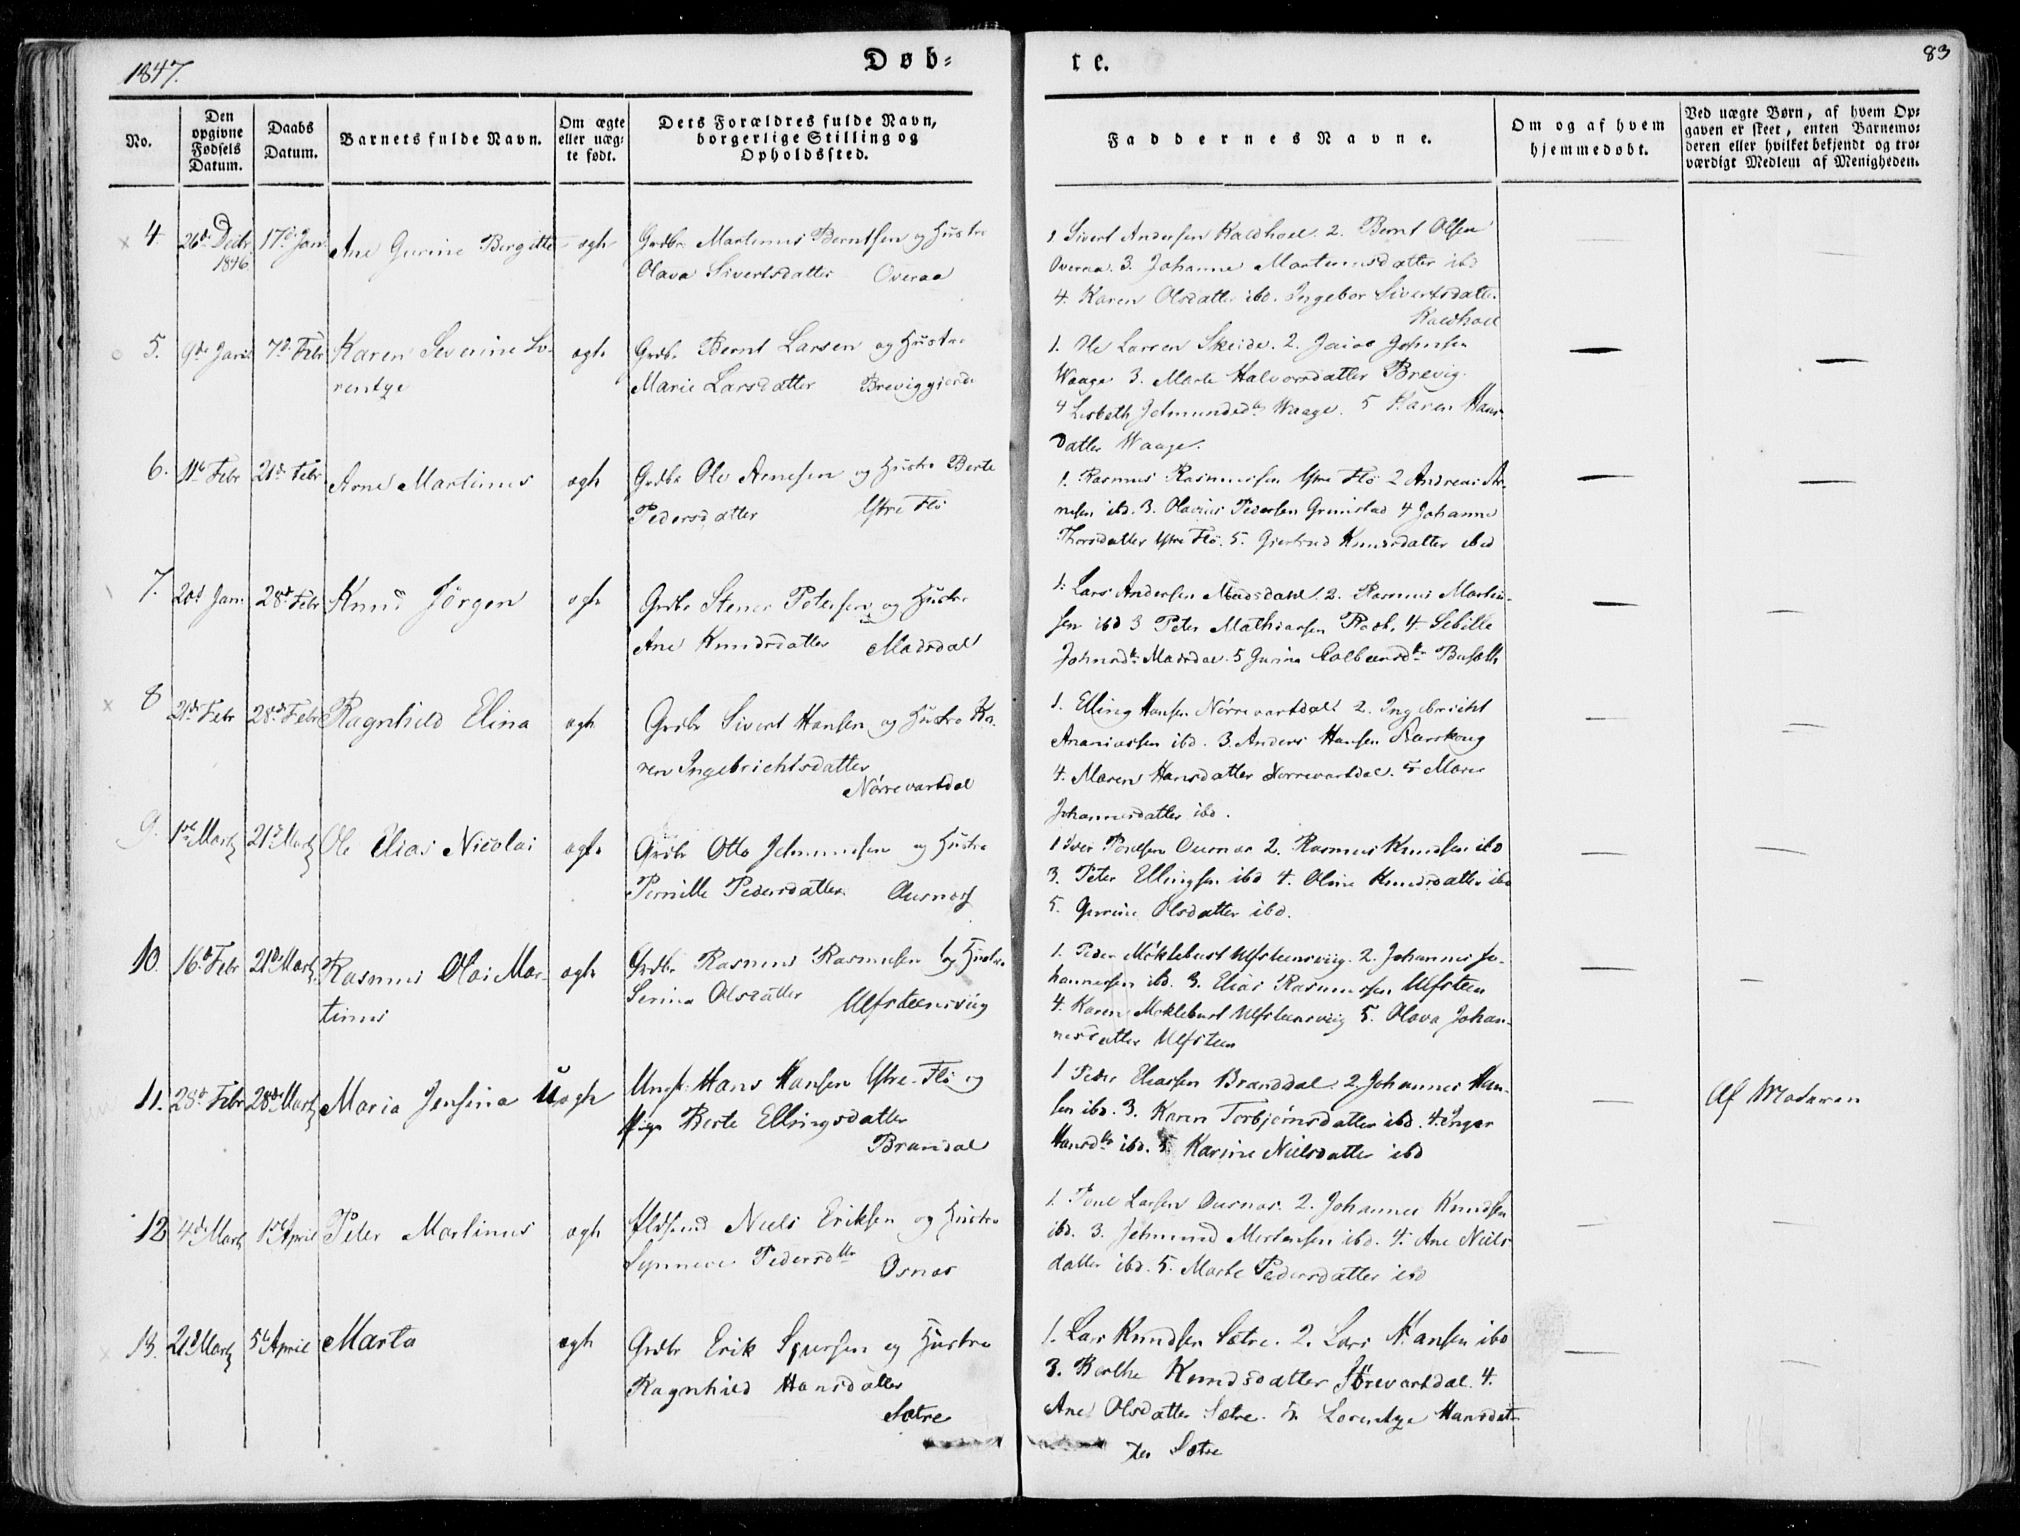 1847.
Døb=
te.
83
No.
Den opgivne Fødsels Datum.
Daabs Datum.
Barnets fulde Navn.
Om ægte eller uæg= te født.
Dets Forældres fulde Navn, borgerlige Stilling og Opholdssted.
Faddernes Navne.
Om og af hvem hjemmedøbt.
Ved uægte Børn, af hvem Op= gaven er skeet, enten Barnemo= deren eller hvilket bekjendt og tro= værdigt Medlem af Menigheden.
4. 26de Decbr 1846 17de Jan Ane Gurine Birgitte ægte
Grdbr Martinus Berntsen og Hustro
Olava Sivertsdatter Overaa
1. Sivert Andersen Kaldhoel. 2. Bernt Olsen
Overaa. 3. Johanne Martinusdatter ibd
4. Karen Olsdatter ibd. Ingebor Sivertsdatter
Kaldhoel
5. 9de Janr 7de Febr Karen Severine Lo-
rentze ægte
Grdbr Bernt Larsen og Hustro
Marie Larsdatter Breviggjerde
1. Ole Larsen Skeide. 2. Johnsen
Waage 3. Marte Halvorsdatter Brevig.
4 Lisbeth Jetmundsdtr Waage. 5 Karen Hans-
datter Waage.
6. 11te Febr 21de Febr Arne Martinus ægte
Grdbr Ole Arnesen og Hustro Berte
Pedersdatter Ytre Flø
1. Rasmus Rasmussen Ytre Flø 2 Andreas Ar-
nesen ibd. 3. Olavius Pedersen Grimstad 4 Johanne
Thorsdatter Ytre Flø. 5. Giertrud Knudsdatter ibid
7. 20de Jan. 28de Febr Knud Jørgen ægte
Grdbr Stener Petersen og Hustro
Ane Knudsdatter Madsdal
1. Lars Andersen Madsdahl. 2. Rasmus Martin-
sen ibd 3 Peter Mathiassen 4. Sebille
Johnsdtr Madsdal. 5 Gurina
8 21de Febr 28de Febr Ragnhild Elina ægte
Grdbr Sivert Hansen og Hustro Ka-
ren Ingebrichtsdatter
Nørrevartdal
1. Elling Hansen Nørrevartdal 2. Ingebricht
Ananiassen ibd. 3. Anders Hansen
4. Maren Hansdatter Nørrevartdal. 5 Maren
Johannesdatter ibd.
9. 1ste Marts 21de Marts Ole Elias Nicolai ægte
Grdbr Otto Jetmundsen og Hustro
Pernille Pedersdatter Ousnæs
1 Iver Povelsen Ousnæs 2. Rasmus Knudsen ibd
3. Peter Ellingsen ibd 4. Oline Knudsdatter ibd
5. Gurine Olsdatter ibd.
10. 16de Febr 21de Marts Rasmus Olai Mar-
tinus ægte
Grdbr Rasmus Rasmusen og Hustro
Serina Olsdatter Ulfsteensviig
1. Peder Møklebust Ulfsteensviig. 2. Johannes Jo-
hannesen ibd. 3. Elias Rasmussen Ulfsteen
4. Karen Møklebust Ulfsteensviig 5. Olava Johan-
nesdatter Ulfsteen
11. 28de Febr 28de Marts Maria Jensina Uægte
Ungk. Hans Hansen Ytre-Flø og
Pige Berte Ellingsdatter
Brandal
1 Peder Eliassen Branddal. 2 Johannes Han-
sen ibd. 3. Karen Torbjørnsdatter ibd. 4. Inger
Hansdtr ibd. 5. Karine Nielsdatter ibd
Af Moderen
12 4de Marts 1ste April Peter Martinus ægte
Niels Eriksen og Hustro
Synneve Pedersdtr Osnæs
1. Povel Larsen Ousnæs. 2. Johannes Knudsen
ibd. 3. Jetmund Mortensen ibd. 4. Ane Niels
datter ibd. 5. Marte Pedersdatter ibd
13. 21de Marts 5te April Marta ægte
Grdbr Erik Sjursen og Hustro
Ragnhild Hansdatter
Sætre
1. Lars Knudsen Sætre. 2. Lars Hansen ibd
3. Berthe Knudsdatter Sørevartdal. 4.
Ane Olsdatter Sætre. 5. Lorentze Hansdat-
ter Sætre